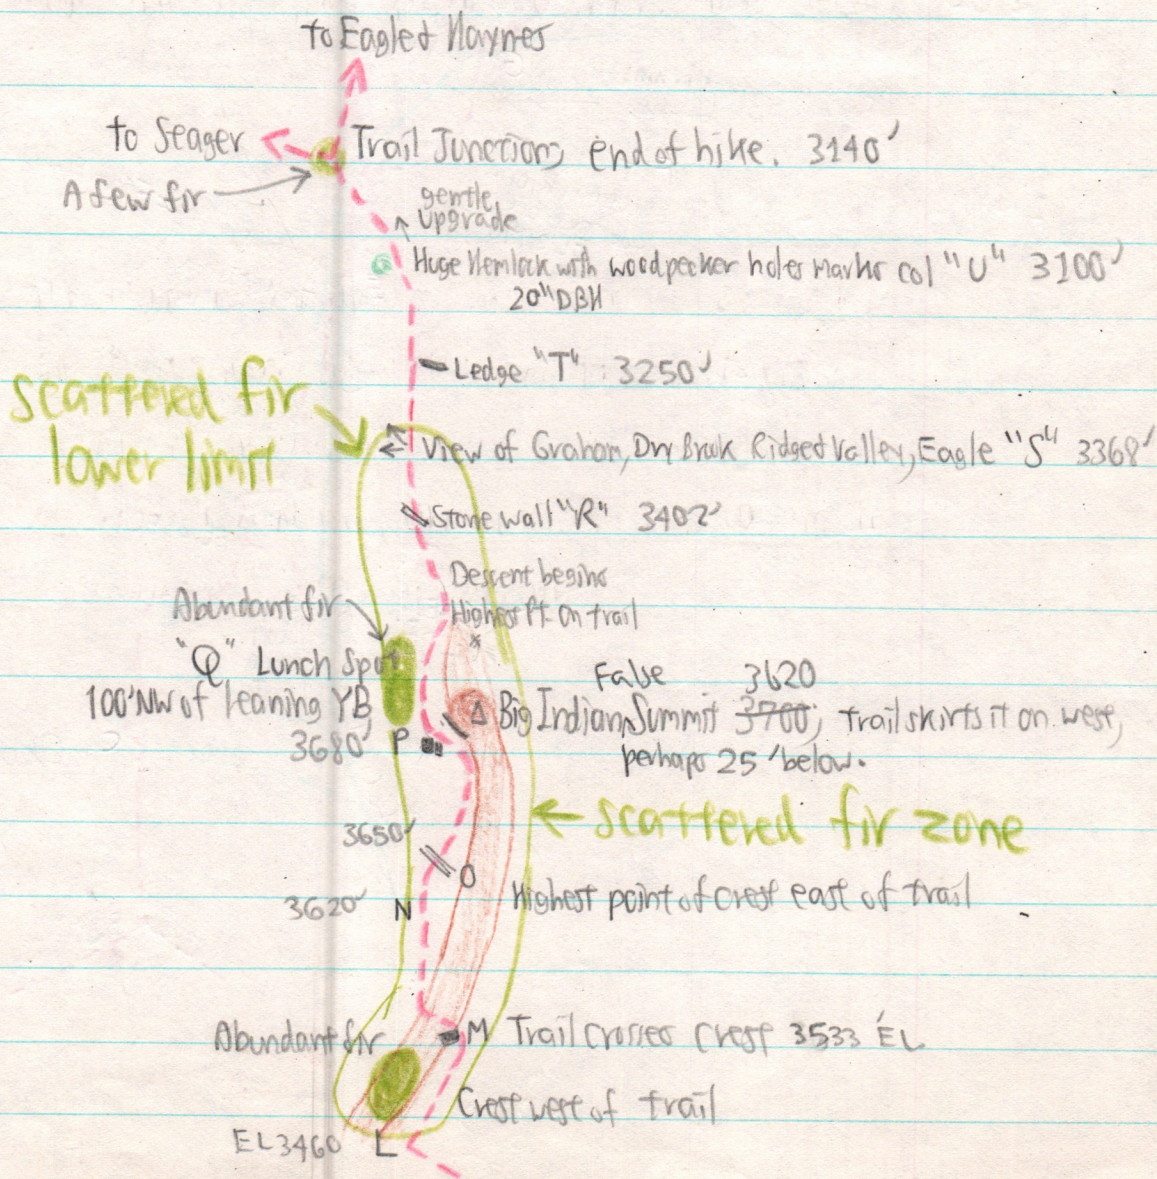 to Eagle & Haynes
to Seager
Trail Junction, end of hike. 3140'
A few fir
gentle
upgrade
Huge Hemlock with woodpecker holes marks col "U" 3100'
20" DBH
Ledge "T" 3250'
scattered fir
lower limit
View of Graham, Dry Brook Ridge & Valley, Eagle "S" 3368'
Stone wall "R" 3402'
Descent begins
Abundant fir
Highest Pt. on trail
"Q" Lunch Spot
False 3620
100' NW of leaning YB
Big Indian Summit 3700, trail skirts it on west,
3680' P
perhaps 25' below.
scattered fir zone
3650'
O
3620' N
Highest point of crest east of trail
Abundant fir
M Trail crosses crest 3533' EL
Crest west of trail
EL 3460 L